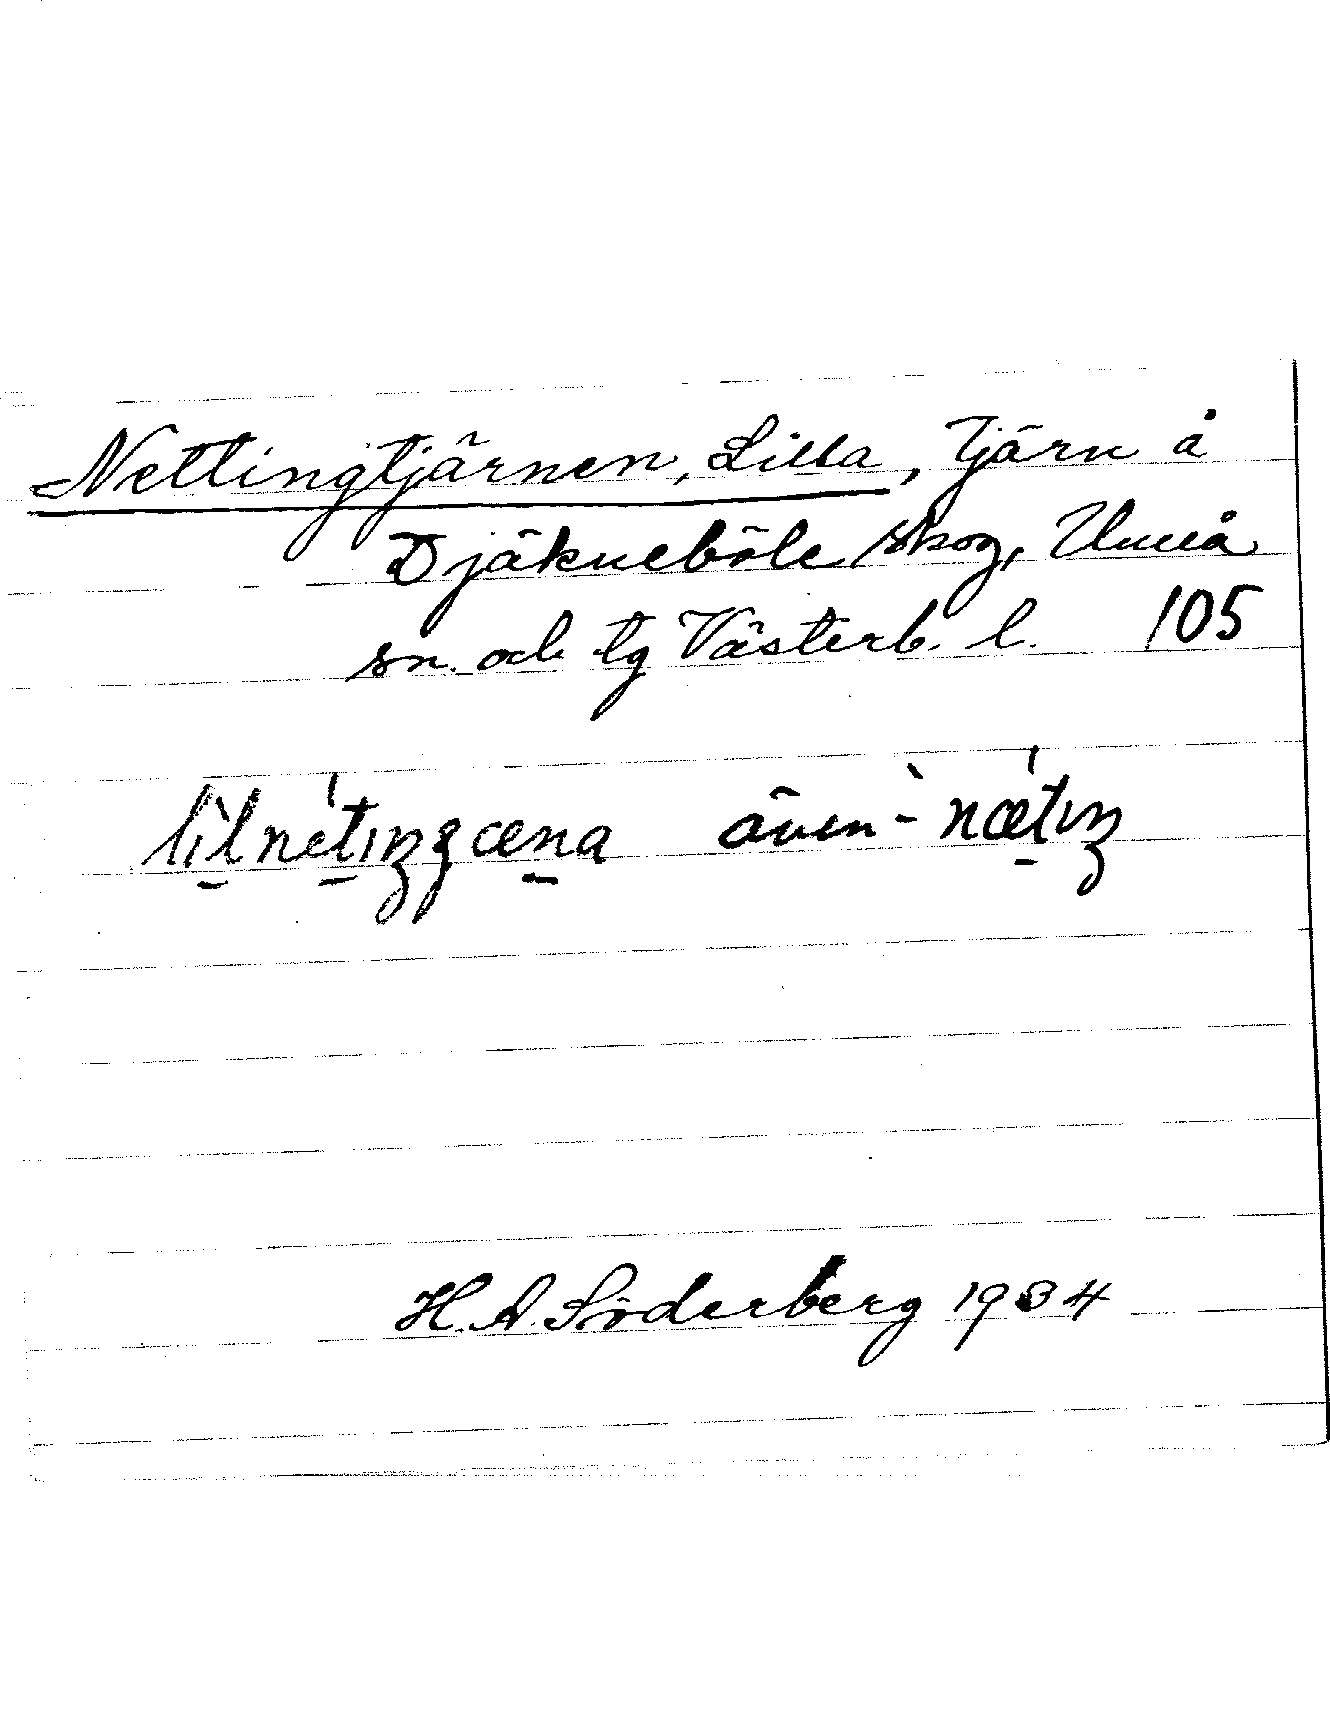 Nettingtjärnen, Lilla, tjärn å
Djäkneböle skog, Umeå
sn. och tg Västerb. l. 105
även
H. A. Söderberg 1934